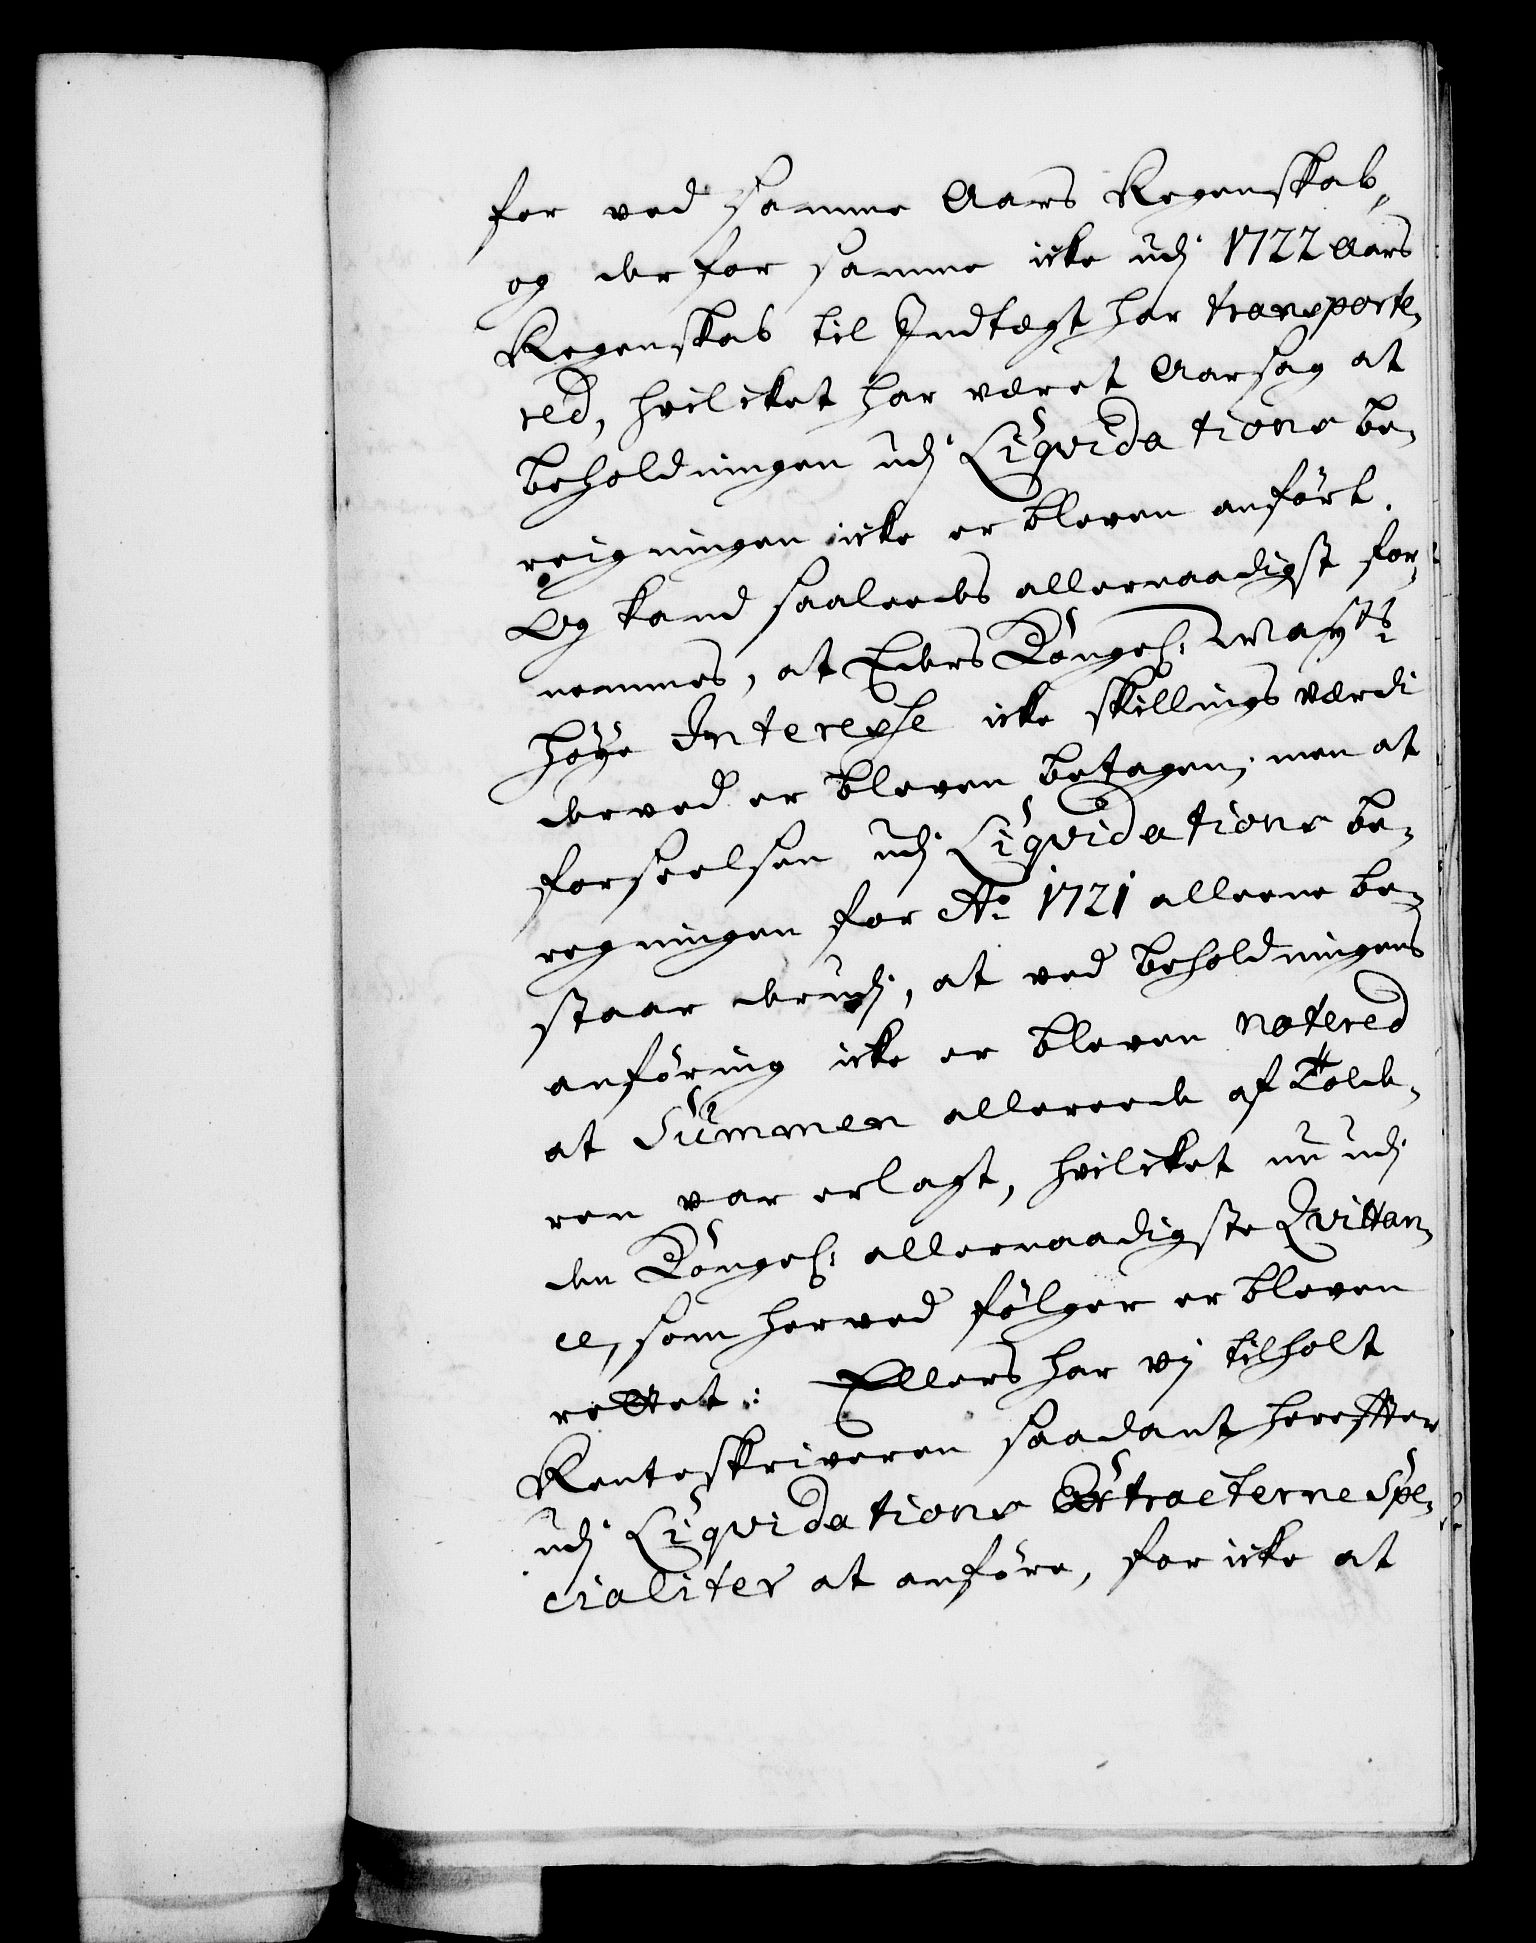 for ved samme Aars Regenskab,
og derfor samme icke udj 1722 Aars
Regenskab til Indtægt har transporte-
red, hvilcket har været Aarsag at
beholdningen udj Liqvidations be-
reigningen icke er bleven anført.
Og kand saaleedes allernaadigst for-
nemmes, at Eders Kongel: Mayts
høye Interesse icke skillings værdi
derved er bleven betagen, men at
forseelsen udj Liqvidations be-
regningen for Ao 1721 alleene be-
staar derudj, at ved beholdningens
anføring icke er bleven notered
at Summen allereede af Tolde-
ren var erlagt, hvilcket nu udj
den Kongel: allernaadigste Qvittan-
ce, som herved følger er bleven
rettet: Ellers har vij tilholt
Renteskriveren saadant herefter
udj Liqvidations Extracterne Spe-
cialiter at anføre, for icke at